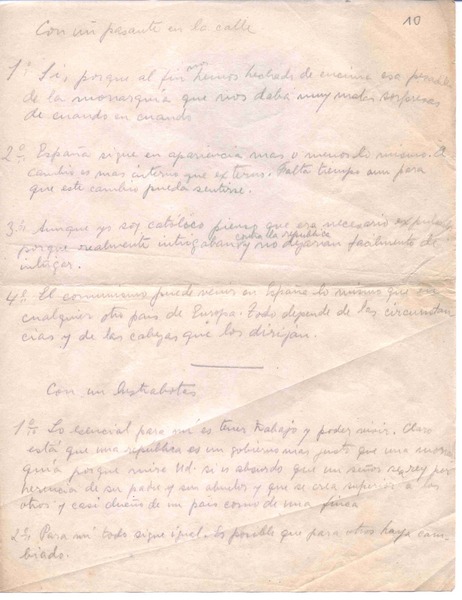 10
Con un pasante en la calle
1º Si, porque al fin nos hemos hechado de encima esa pesadilla
de la monarquía que nos daba muy malas sorpresas
de cuando en cuando
2º; España sigue en apariencia mas o menos lo mismo. El
cambio es mas interno que externo. Falta tiempo aun para
que este cambio pueda sentirse.
3º; Aunque yo soy católico pienso que era necesario expulsarlos
contra la republica
porque realmente intrigaban y no dejarian facilmente de
intrigar.
4º; El comunismo puede venir en España lo mismo que en
cualquier otro pais de Europa. Todo depende de las circunstan
cias y de las cabezas que los dirijan.
Con un lustrabotas
1º; Lo esencial para mi es tener trabajo y poder vivir. Claro
está que una republica es un gobierno mas justo que una monar
quia porque mire Ud. si es absurdo que un señor sea rey por
herencia de su padre y sus abuelos y que se crea superior a los
otros y casi dueño de un pais como de una finca
2º; Para mi todo sigue igual. Es posible que para otros haya cam
biado.